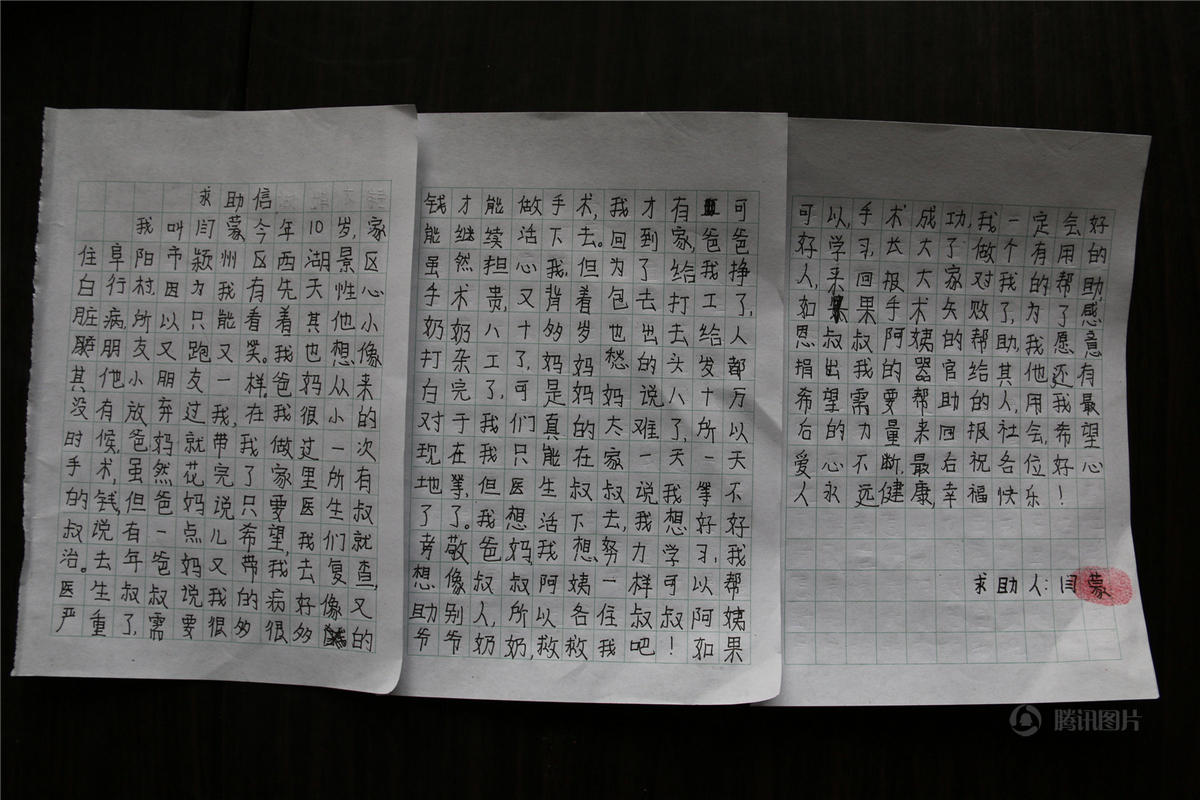 求助信
我叫闫蒙,今年10岁,家
住阜阳市颍州区西湖景区
白行村因为我有先天性心
脏病,所以只能看着其他小
朋友又跑又笑。我也想像
其他小朋友一样,爸妈从来
没有放弃过我,在我很小的
时候,爸妈就带我做过一次
手术,虽然花完了家里所有
的钱,但爸妈说只要医生叔
叔说有一点儿希望,我们就
治。去年爸妈又带我去复查,
医生叔叔说我的病好像又
严重了,需要很多很多的
钱才能做手术,我才有可
能继续活下去。回到家,爸爸
虽然担心我,但为了给我挣
手术贵,又背着包去打工了,
奶奶八十多岁也出去给人
打杂工了,妈妈愁的头发都
白完了,可是妈妈说八十万
对于我们真的太难了,所以
现在我只能在家一天一天
地等,但医生叔叔说我等不
了了。我想活下去,我想好好
孝敬爸妈,我想努力学习,我
想像叔叔阿姨一样可以帮
助别人,所以各位叔叔阿姨
爷爷奶奶,救救我吧!如果
可以,手术成功,我一定会好
好学习,长大了做个有用的
人,来回报大家对我的帮助,
如果手术失败了,我为了感
恩叔叔阿姨的帮助,我愿意
捐出我的器官给其他还有
希望需要帮助的人,用我最
后的力量来回报社会,希望
爱心不断.最后祝各位好心
人永远健康,幸福快乐!
求助人:闫蒙
腾讯图片